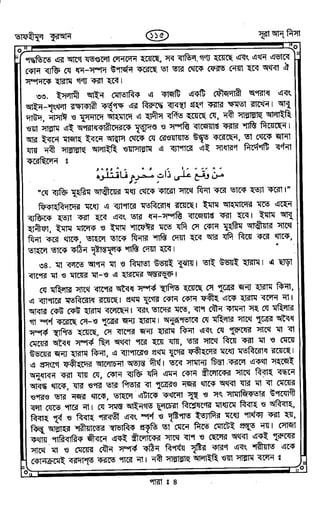 তাফহীমুল কুরআন
১১৫
সূরা আন নিসা
পদ্ধতিতে এর আগে যতগুলো লেনদেন হয়েছে, সব বাতিল গণ্য হয়েছে এবং এখন এভাবে
কোন ব্যক্তি যে ধন-সম্পদ উপার্জন করেছে তা তার থেকে ফেরত নেয়া হবে অথবা ঐ
সম্পদকে হারাম গণ্য করা হবে।
৩৩. ইসলামী আইন মোতাবিক এ কাজটি একটি ফৌজদারী অপরাধ এবং
আইন-শৃংখলা রক্ষাকারী কর্তৃপক্ষ এর বিরুদ্ধে ব্যবস্থা গ্রহণ করার ক্ষমতা রাখেন। আবু
দাউদ, নাসাঈ ও মুসনাদে আহমাদে এ হাদীস বর্ণিত হয়েছে যে, নবী সাল্লাল্লাহু আলাইহি
ওয়া সাল্লাম এই অপরাধকারীদেরকে মৃত্যুদণ্ড ও সম্পত্তি বাজেয়াপ্ত করার শাস্তি দিয়েছেন।
আর ইবনে মাজাহ ইবনে আব্বাস থেকে যে রেওয়ায়াত উদ্ধৃত করেছেন, তা থেকে জানা
যায় নবী সাল্লাল্লাহু আলাইহি ওয়াসাল্লাম এ ব্যাপারে এই সাধারণ নির্দেশটি বর্ণনা
করেছিলেন ঃ
مَنْ وَقَعَ عَلَى ذَاتِ مُحْرِمٍ فَاقْتُلُوْهُ
"যে ব্যক্তি মুহরিম আত্মীয়ের মধ্য থেকে কারো সাথে যিনা করে তাকে হত্যা করো।"
ফিকাহবিদদের মধ্যে এ ব্যাপারে মতবিরোধ রয়েছে। ইমাম আহমাদের মতে এহেন
ব্যক্তিকে হত্যা করা হবে এবং তার ধন-সম্পত্তি বাজেয়াপ্ত করা হবে। ইমাম আবু
হানীফা, ইমাম মালেক ও ইমাম শাফেঈর মতে যদি সে কোন মুহরিম আত্মীয়ার সাথে
যিনা করে থাকে, তাহলে তাকে যিনার শাস্তি দেয়া হবে আর যদি বিয়ে করে থাকে,
তাহলে তাকে কঠিন দৃষ্টান্তমূলক শাস্তি দেয়া হবে।
৩৪. মা বলতে আপন মা ও বিমাতা উভয়ই বুঝায়। তাই উভয়ই হারাম। এ ছাড়া
বাপের মা ও মায়ের মা-ও এ হারামের অন্তরভুক্ত।
যে মহিলার সাথে বাপের অবৈধ সম্পর্ক স্থাপিত হয়েছে সে পুত্রের জন্য হারাম কিনা,
এ ব্যাপারে মতবিরোধ রয়েছে। প্রথম যুগের কোন কোন ফকীহ একে হারাম বলেন না।
আবার কেউ কেউ হারাম বলেছেন। বরং তাদের মতে, বাপ যৌন কামনা সহ যে মহিলার
গা স্পর্শ করেছে সে-ও পুত্রের জন্য হারাম। অনুরূপভাবে যে মহিলার সাথে পুত্রের অবৈধ
সম্পর্ক স্থাপিত হয়েছে, সে বাপের জন্য হারাম কিনা এবং যে পুরুষের সাথে মা বা
মেয়ের অবৈধ সম্পর্ক ছিল অথবা পরে হয়ে যায়, তার সাথে বিয়ে করা মা ও মেয়ে
উভয়ের জন্য হারাম কিনা, এ ব্যাপারেও প্রথম যুগের ফকীহদের মধ্যে মতবিরোধ রয়েছে।
এ প্রসংগে ফকীহদের আলোচনা অত্যন্ত দীর্ঘ। তবে সামান্য চিন্তা করলে একথা সহজেই
অনুধাবন করা যায় যে, কোন ব্যক্তি যদি এমন কোন স্ত্রীলোকের সাথে বিবাহ বন্ধনে
আবদ্ধ থাকে, যার ওপর তার পিতার বা পুত্রেরও নজর থাকে অথবা যার মা বা মেয়ের
ওপরও তার নজর থাকে, তাহলে এটাকে কখনো সুস্থ ও সৎ সামাজিকতার উপযোগী
বলা যেতে পারে না। যে সমস্ত আইনগত চুলচেরা বিশ্লেষণের মাধ্যমে বিবাহ ও অবিবাহ,
বিবাহ পূর্ব ও বিবাহ পরবর্তী এবং স্পর্শ ও দৃষ্টিপাত ইত্যাদির মধ্যে পার্থক্য করা হয়,
কিন্তু আল্লাহর শরীয়াতের স্বাভাবিক প্রকৃতি তা মেনে নিতে মোটেই প্রস্তুত নয়। সোজা
কথায় পারিবারিক জীবনে একই স্ত্রীলোকের সাথে বাপ ও ছেলের অথবা একই পুরুষের
সাথে মা ও মেয়ের যৌন সম্পর্ক কঠিন বিপর্যয় সৃষ্টির কারণ এবং শরীয়াত একে
কোনক্রমেই বরদাশত করতে পারে না। নবী সাল্লাল্লাহু আলাইহি ওয়া সাল্লাম বলেন ঃ
পারা ঃ ৪